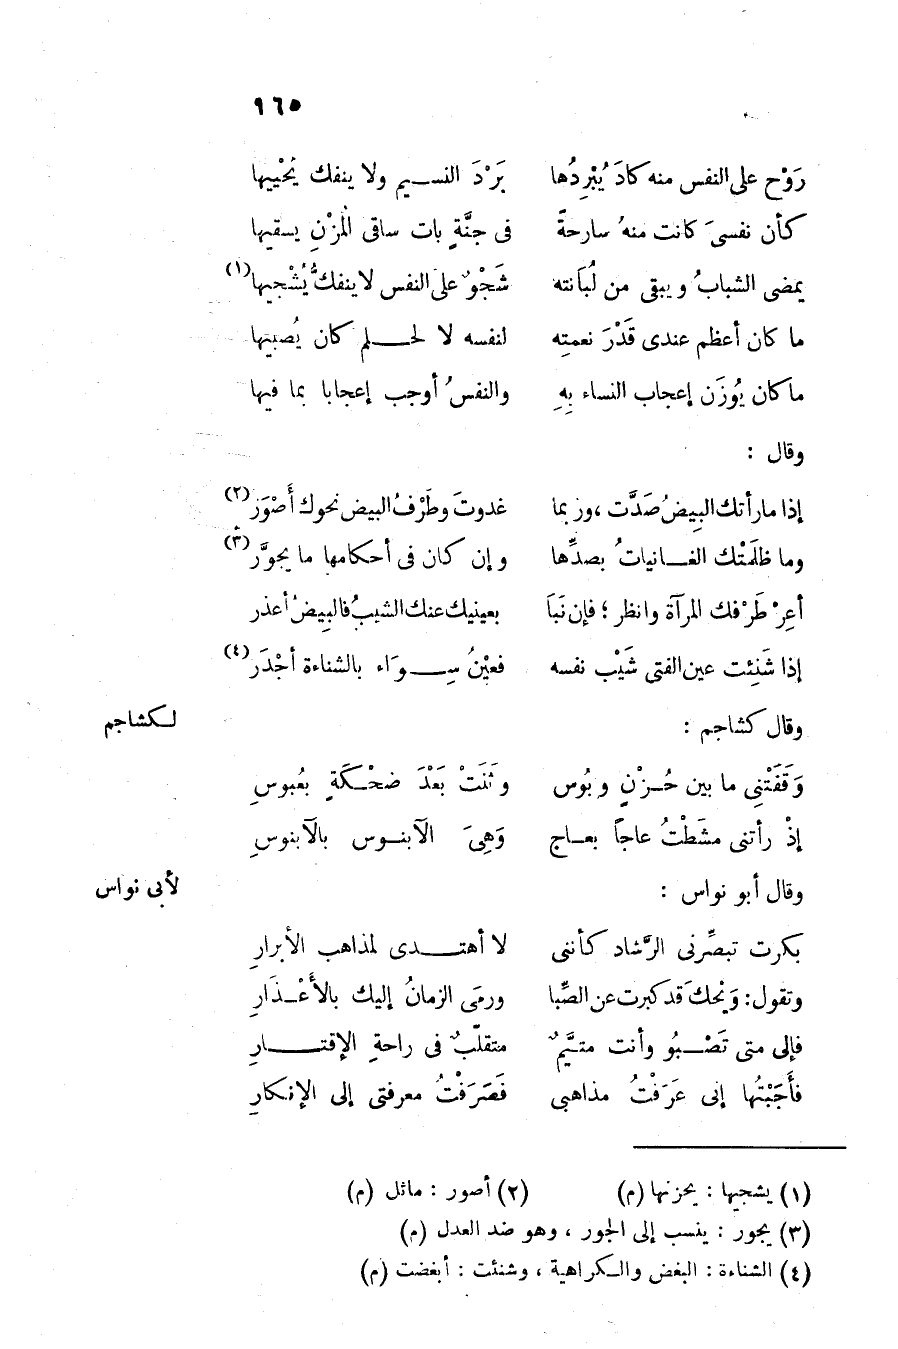 ٩٦٥
رَوْح على النفس منه كادَ يُبْرِدُها بَرْدَ النسيم ولا ينفك يُحْييها
كأن نفسىَ كانت منهُ سارحةً فى جنَّةٍ بات ساقى المُزْنِ يسقيها
يمضى الشبابُ ويبقى من لُبَانته شَجْوٌ على النفس لا ينفكُّ يُشْجيها (١)
ما كان أعظم عندى قَدْرَ نعمتِه لنفسه لا لحلم كان يُصبيها
ما كان يُوزَن إعجاب النساء بِهِ والنفسُ أوجب إعجابا بما فيها
وقال :
إذا ما رأتك البيضُ صَدَّت ، وربما غدوتَ وطَرْفُ البيض نحوك أَصْوَر (٢)
وما ظلمَتْك الغانياتُ بصدِّها وإن كان فى أحكامها ما يجوَّر (٣)
أعِرْ طَرْفك المرآة وانظر ؛ فإن نَبَا بعينيك عنك الشيبُ فالبيضُ أعذر
إذا شَنِئت عين الفتى شَيْب نفسه فعيْنُ سِوَاء بالشناءة أجْدَر (٤)
وقال كشاجم : لكشاجم
وَقَفَتْنى ما بين حُزْنٍ وبُوس وثَنَتْ بَعْدَ ضحْكَةٍ بعُبوسِ
إذْ رأتنى مشَطْتُ عاجاً بعاج وَهِىَ الآبنوس بالآبنوسِ
وقال أبو نواس : لأبى نواس
بكرت تبصِّرنى الرَّشاد كأننى لا أهتدى لمذاهب الأبرارِ
وتقول : وَيْحكَ قد كبرت عن الصِّبا ورمَى الزمانُ إليك بالأَعْذَارِ
فإلى متى تَصْبُو وأنت متيَّمٌ متقلّبٌ فى راحةِ الإقتارِ
فأَجَبْتُها إنى عَرَفْتُ مذاهبى فَصَرَفْتُ معرفتى إلى الإنكارِ
(١) يشجيها : يحزنها (م) (٢) أصور : مائل (م)
(٣) يجور : ينسب إلى الجور ، وهو ضد العدل (م)
(٤) الشناءة : البغض والكراهية ، وشنئت : أبغضت (م)